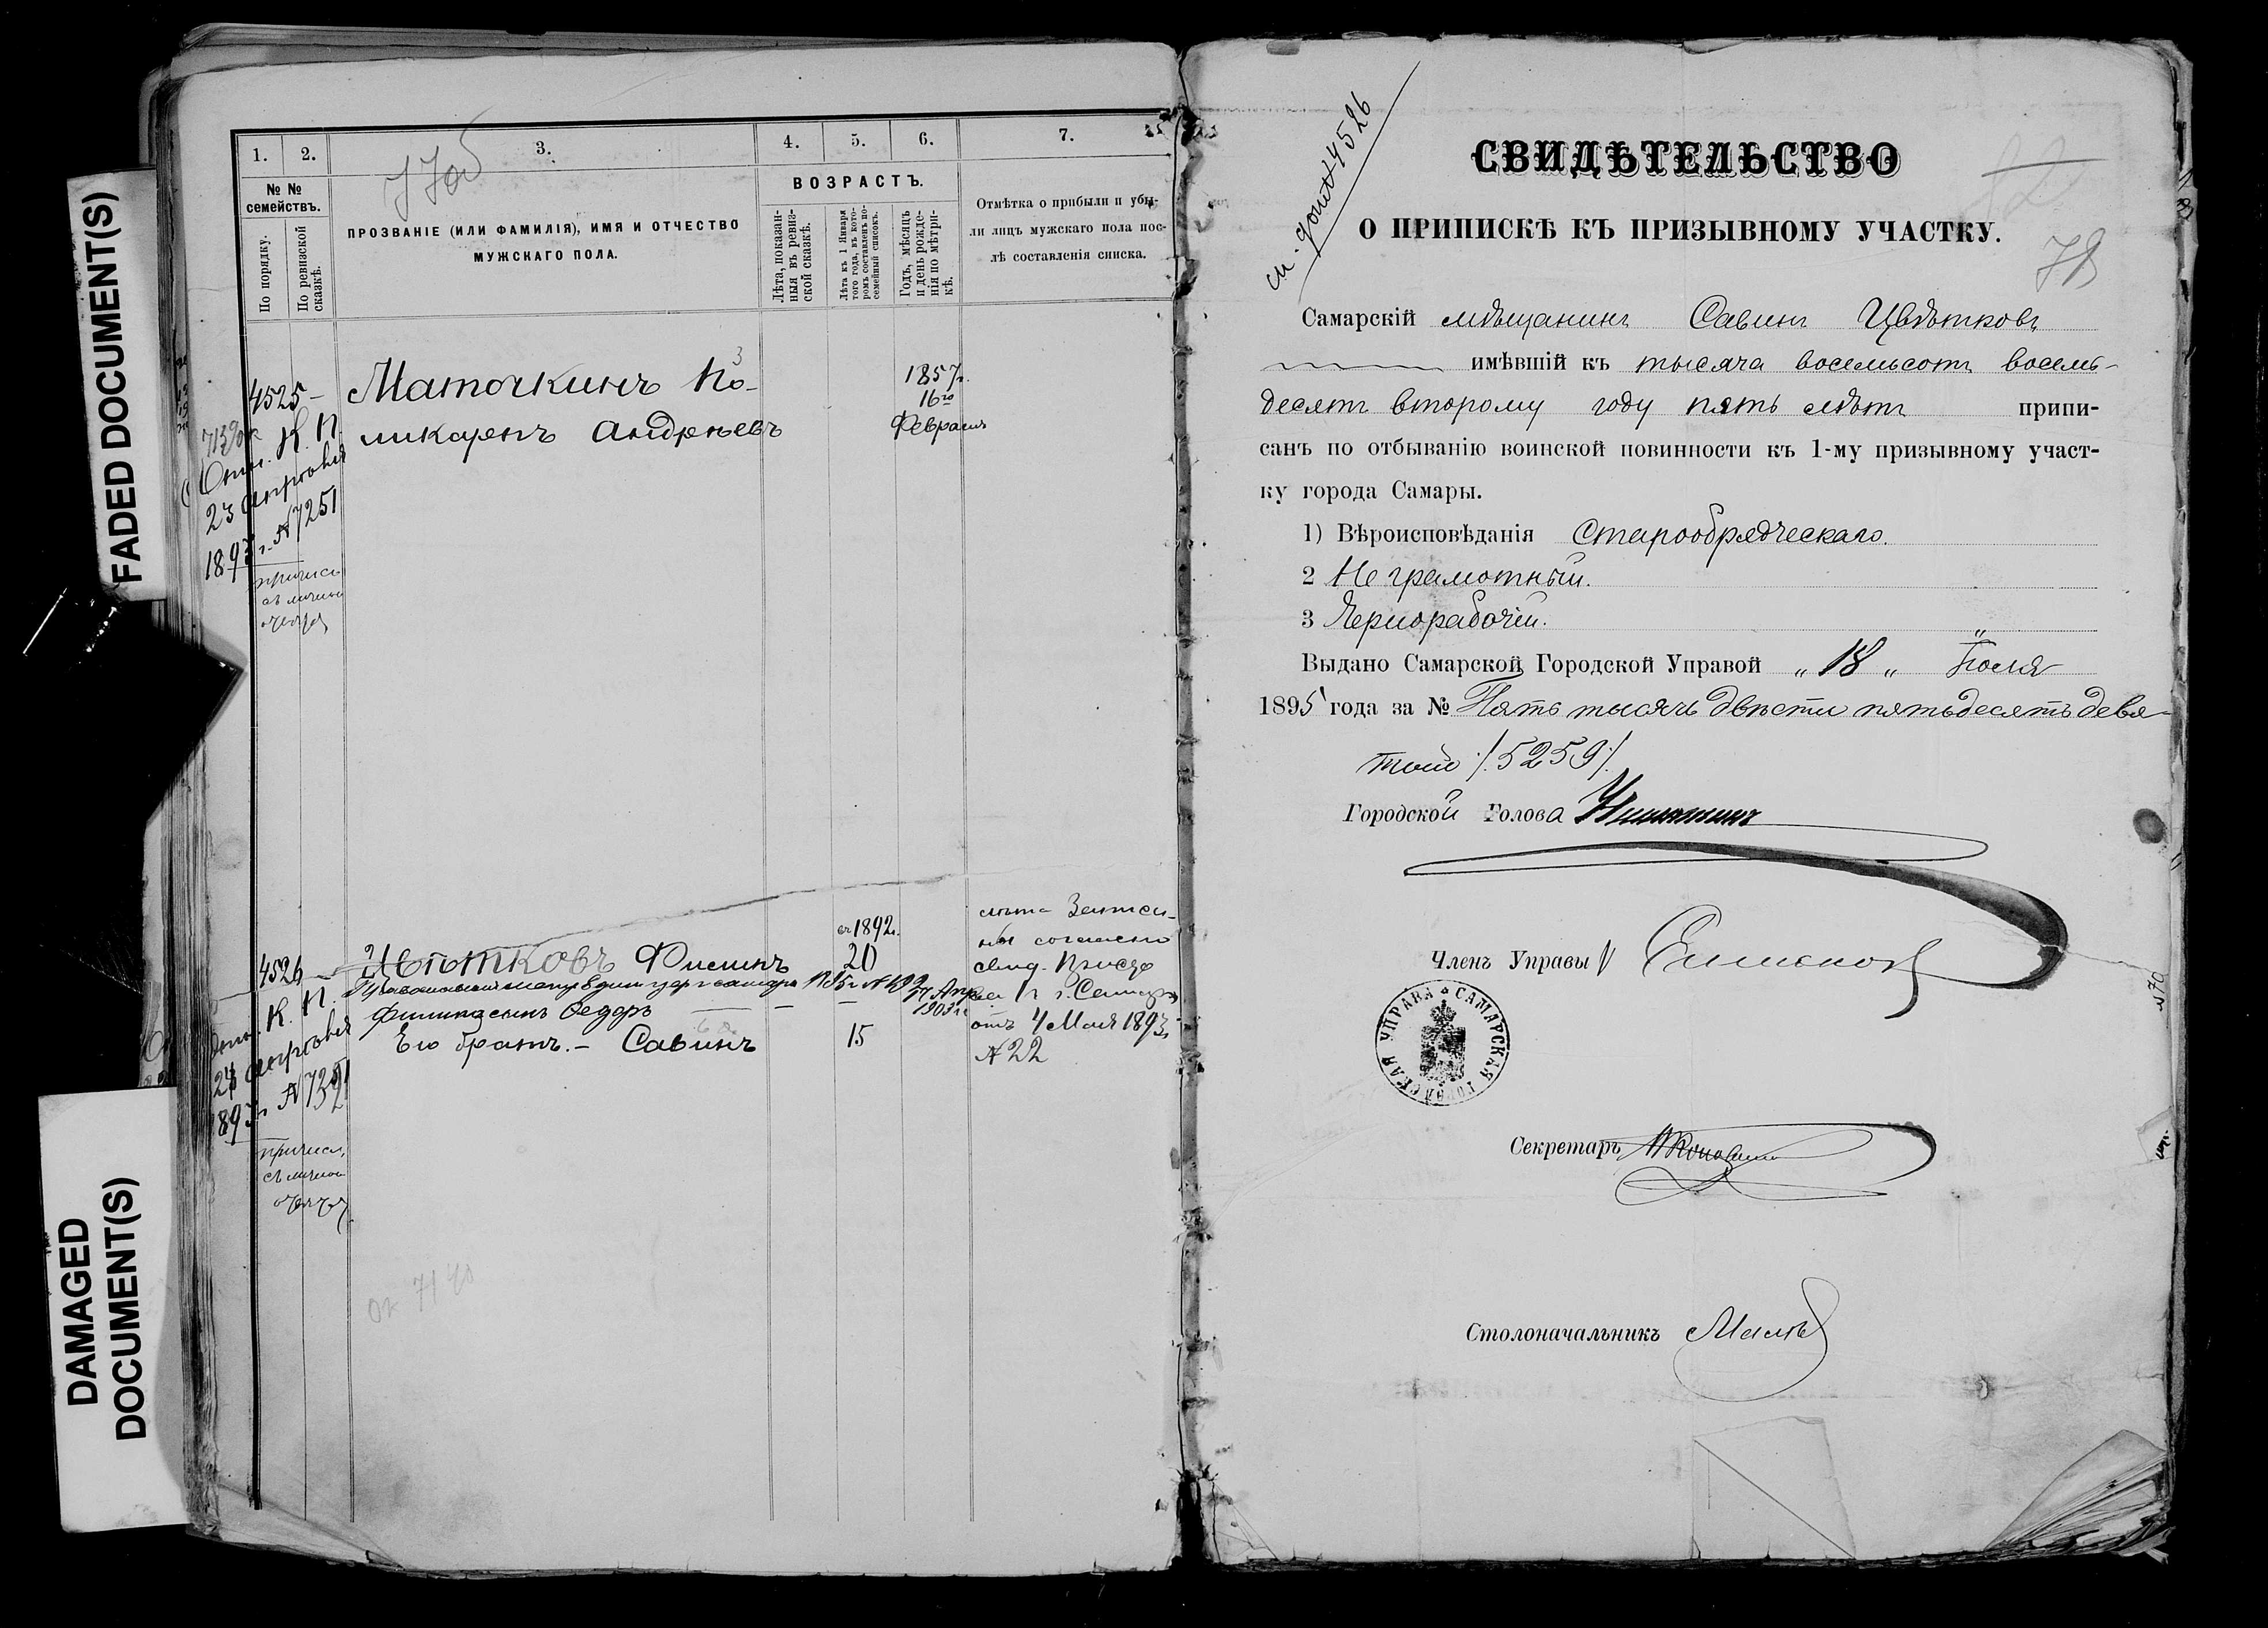 FADED DOCUMENT(S)
DAMAGED
DOCUMENT(S)
77об
1. 2. 3. 4. 5. 6. 7.
№ №
семействъ.
По порядку.
По ревизской
сказкѣ.
ПРОЗВАНІЕ (ИЛИ ФАМИЛІЯ), ИМЯ И ОТЧЕСТВО
МУЖСКАГО ПОЛА.
ВОЗРАСТЪ.
Лѣта, показан-
ныя въ ревиз-
ской сказкѣ.
Лѣта къ 1 Января
того года, въ кото-
ромъ составленъ по-
семейный списокъ.
Годъ, мѣсяцъ
и день рожде-
нія по метри-
кѣ.
Отмѣтка о прибыли и убы-
ли лицъ мужскаго пола пос-
лѣ составленія списка.
4525 - Маточкинъ По-
ликарпъ Андреевъ
1857г.
16го
Февраля
К. П.
23 Апрѣля
1893 г. № 7251
4526 - Цвѣтковъ Филипъ
къ 1892г.
20
Филипа сынъ Федоръ
1903 г.
Его братъ. - Савинъ 15
лѣта
согласно
свид.
1 г. Самары
отъ 4 Мая 1893г.
№ 22
К. П.
24 Апрѣля
1893г №
см. 4526
СВИДѢТЕЛЬСТВО
О ПРИПИСКѢ КЪ ПРИЗЫВНОМУ УЧАСТКУ.
78
Самарскій мѣщанинъ Савинъ Цвѣтковъ
имѣвшій къ тысяча восемьсотъ восемь-
десятъ второму году пять лѣтъ припи-
санъ по отбыванію воинской повинности къ 1-му призывному участ-
ку города Самары.
1) Вѣроисповѣданія Старообрядческаго.
2 Не грамотный.
3 Чернорабочій.
Выдано Самарской Городской Управой „ 18 „ Іюля
1895 года за № Пять тысячъ двѣсти пятьдесятъ девя-
тый /.5259/.
Городской Голова
Членъ Управы
САМАРСКАЯ ГОРОДСКАЯ УПРАВА
Секретарь
Столоначальникъ